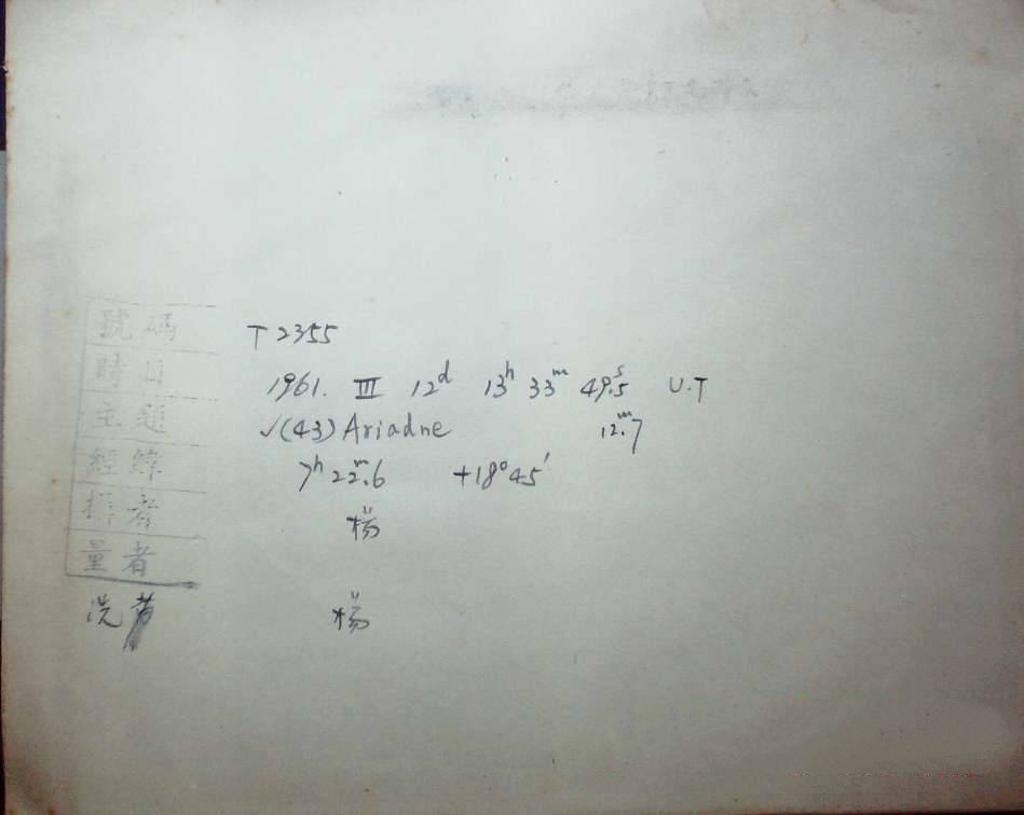 號碼 T 2355
時日 1961. III 12ᵈ 13ʰ 33ᵐ 49ˢ.5 U.T
主題 ✓(43) Ariadne 12ᵐ.7
經緯 7ʰ 22ᵐ.6 +18°45′
者 楊
量者
洗者 楊